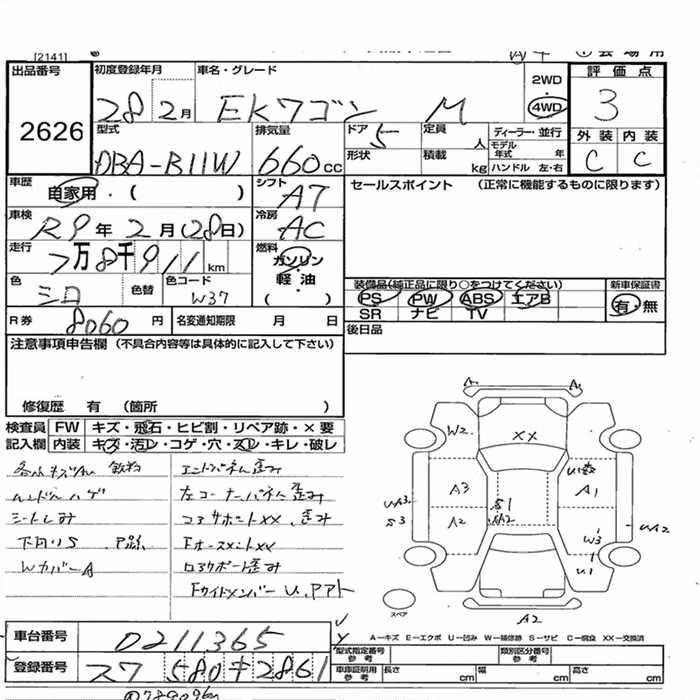 [2141]
出品番号
2626
初度登録年月
28 2月
車名・グレード
EKワゴン M
2WD
4WD
評価点
3
外装 内装
C C
型式
DBA-B11W
排気量
660cc
ドア
5
定員
人
形状
積載
kg
ディーラー・並行
モデル年式 年
ハンドル 左・右
車歴
自家用・( )
シフト
A7
セールスポイント (正常に機能するものに限ります)
車検
R9年2月(28日)
冷房
AC
走行
7万8千911km
燃料
ガソリン
軽・油
( )
色
シロ
色替
色コード
W37
装備品(純正品に限り○をつけてください)
PS PW ABS エアB
SR ナビ TV
新車保証書
有・無
R券
8060円
名変通知期限 月 日
後日品
注意事項申告欄 (不具合内容等は具体的に記入して下さい)
修復歴 有 (箇所 )
検査員 FW キズ・飛石・ヒビ割・リペア跡・×要
記入欄 内装 キズ・汚レ・コゲ・穴・スレ・キレ・破レ
ハンドルハゲ
シートしみ
Wカバー A
左コーナーパネル歪み
コアサポートXX 歪み
A
A
W2
XX
A3
A2
S1
A1
W3
U1
S3
WA2
A2
スペア
A－キズ E－エクボ U－凹み W－補修跡 S－サビ C－腐食 XX－交換済
車台番号
0211365
登録番号
580 キ 2861
型式指定番号 参考
類別区分番号 参考
車庫証明用 参考
長さ cm
幅 cm
高さ cm